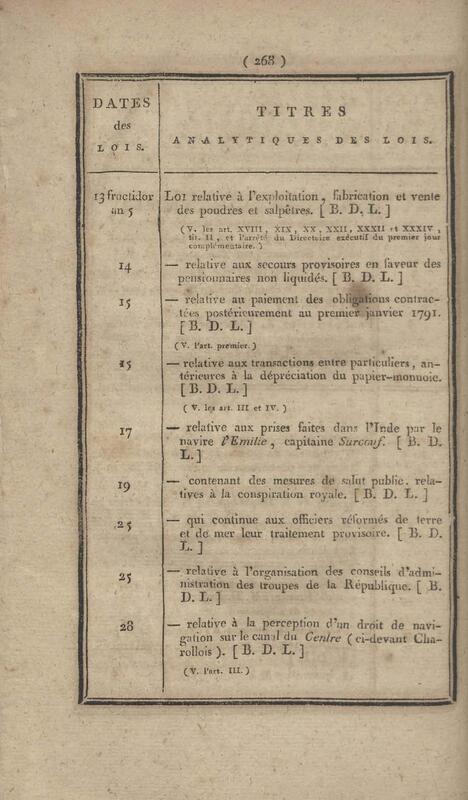 ( 268 )
DATES
des
LOIS.
TITRES
ANALYTIQUES DES LOIS.
13 fructidor
an 5
LOI relative à l'exploitation, fabrication et vente
des poudres et salpêtres. [ B. D. L. ]
(V. les art. XVIII, XIX, XX, XXII, XXXII et XXXIV,
tit. II, et l'arrêté du Directoire exécutif du premier jour
complémentaire. )
14
— relative aux secours provisoires en faveur des
pensionnaires non liquidés. [ B. D. L. ]
15
— relative au paiement des obligations contrac-
tées postérieurement au premier janvier 1791.
[ B. D. L. ]
(V. l'art. premier.)
15
— relative aux transactions entre particuliers, an-
térieures à la dépréciation du papier-monnoie.
[ B. D. L. ]
( V. les art. III et IV. )
17
— relative aux prises faites dans l'Inde par le
navire l'Emilie, capitaine Surcouf. [ B. D.
L. ]
19
— contenant des mesures de salut public, rela-
tives à la conspiration royale. [ B. D. L. ]
25
— qui continue aux officiers réformés de terre
et de mer leur traitement provisoire. [ B. D.
L. ]
25
— relative à l'organisation des conseils d'admi-
nistration des troupes de la République. [ B.
D. L. ]
28
— relative à la perception d'un droit de navi-
gation sur le canal du Centre ( ci-devant Cha-
rollois ). [ B. D. L. ]
(V. l'art. III.)